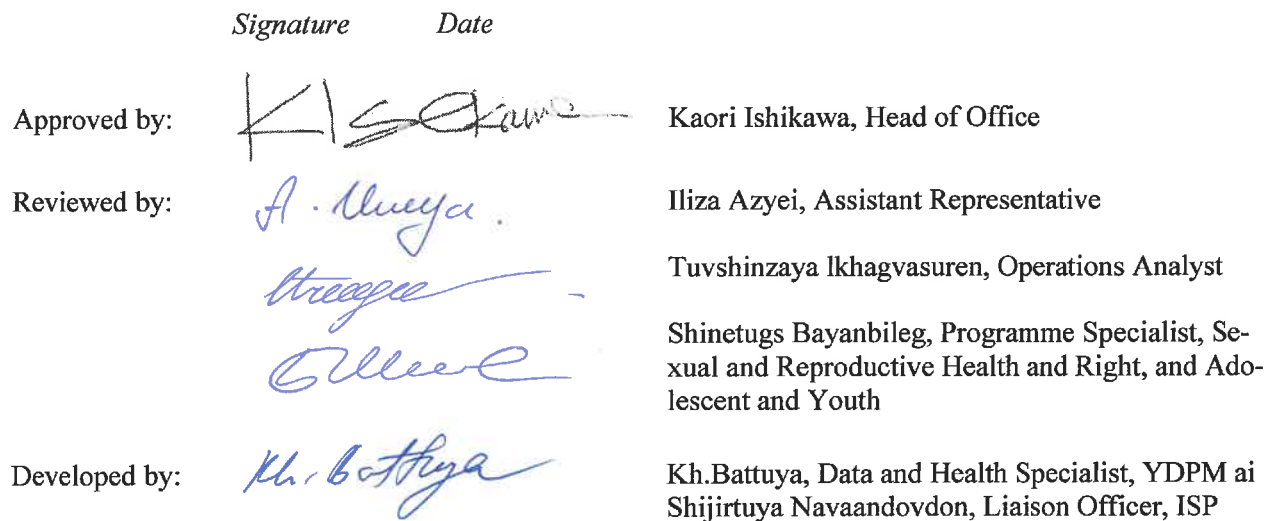 Signature Date
Approved by: KIshikawa Kaori Ishikawa, Head of Office
Reviewed by: Iliza Azyei, Assistant Representative
Tuvshinzaya lkhagvasuren, Operations Analyst
Shinetugs Bayanbileg, Programme Specialist, Se-
xual and Reproductive Health and Right, and Ado-
lescent and Youth
Developed by: Kh.Battuya Kh.Battuya, Data and Health Specialist, YDPM ai
Shijirtuya Navaandovdon, Liaison Officer, ISP